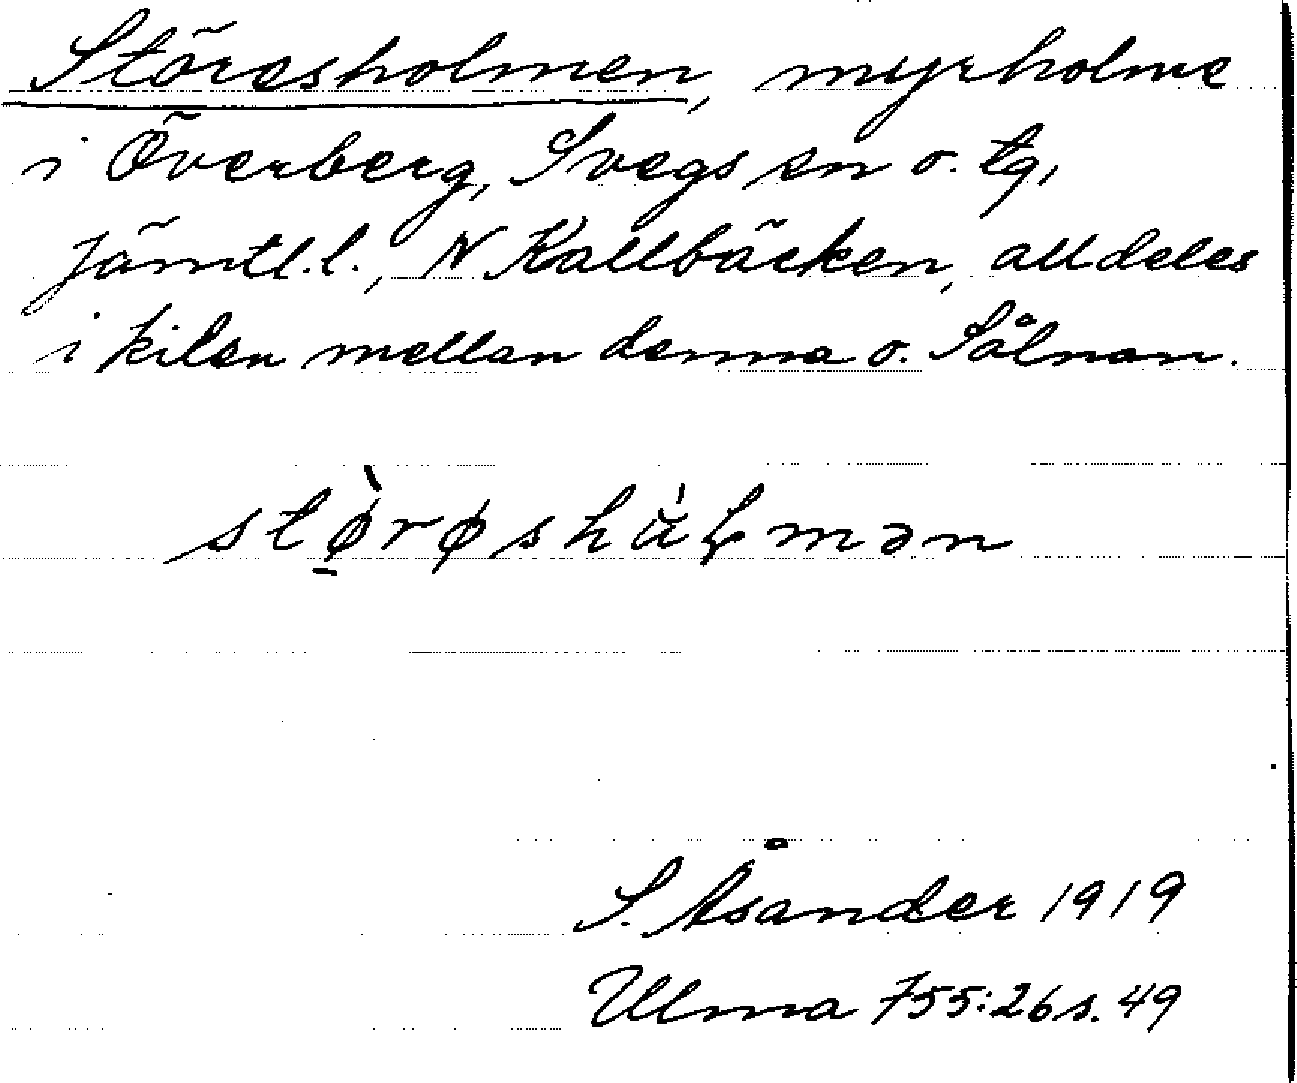 Störesholmen, myrholme
i Överberg, Svegs sn o. tg,
Jämtl.l., N Kallbäcken, alldeles
i kilen mellan denna o. Sålnan.
stø̱̀røshàɽmən
S. Åsander 1919
Ulma 755:26 s. 49